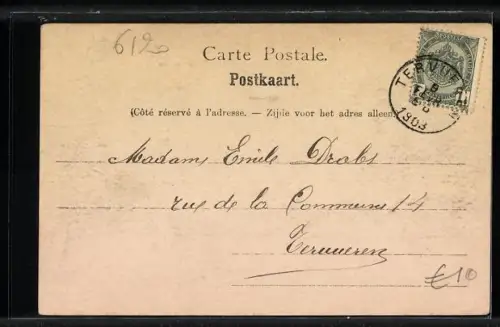 612
Carte Postale.
Postkaart.
(Côté réservé à l'adresse. — Zijde voor het adres alleen)
TERVUE
8
1903
Madame Emile Drabs
rue de la Commune 14
Tervueren
€10